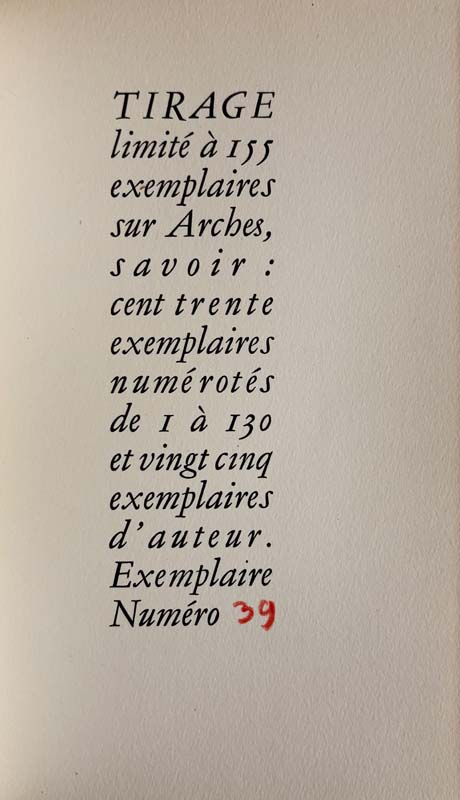 TIRAGE
limité à 155
exemplaires
sur Arches,
savoir :
cent trente
exemplaires
numérotés
de 1 à 130
et vingt cinq
exemplaires
d'auteur.
Exemplaire
Numéro 39